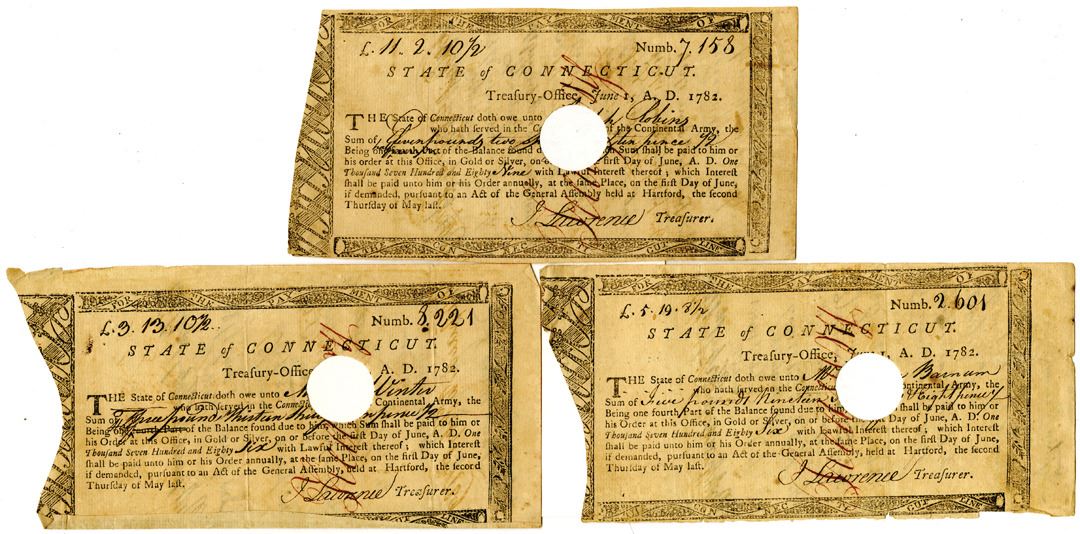 FOR THE PAY MENT OF
£. 11. 2. 10½ Numb. 7.158
STATE of CONNECTICUT.
Treasury-Office, June 1, A. D. 1782.
THE State of Connecticut doth owe unto Robins
who hath served in the C of the Continental Army, the
Sum of Eleven pounds two pence ½
Being Part of the Balance found d which Sum shall be paid to him or
his order at this Office, in Gold or Silver, on first Day of June, A. D. One
Thousand Seven Hundred and Eighty Nine with Lawful Interest thereof; which Interest
shall be paid unto him or his Order annually, at the same Place, on the first Day of June,
if demanded, pursuant to an Act of the General Assembly held at Hartford, the second
Thursday of May last.
J Lawrence Treasurer.
THE CON NEC CUT LINE
FOR THE PAY MENT OF
£. 3. 13. 10½ Numb. 3.221
STATE of CONNECTICUT.
Treasury-Offic A. D. 1782.
THE State of Connecticut doth owe unto Winter
who hath served in the Connectic Continental Army, the
Sum of Three pounds thirteen pence ½
Being Part of the Balance found due to him, which Sum shall be paid to him or
his Order at this Office, in Gold or Silver, on or before the first Day of June, A. D. One
Thousand Seven Hundred and Eighty Six with Lawful Interest thereof; which Interest
shall be paid unto him or his Order annually, at the same Place, on the first Day of June,
if demanded, pursuant to an Act of the General Assembly, held at Hartford, the second
Thursday of May last.
J Lawrence Treasurer.
FOR THE PAY MENT OF
£. 5. 19. 8½ Numb. 2.601
STATE of CONNECTICUT.
Treasury-Office, June 1, A. D. 1782.
THE State of Connecticut doth owe unto Barnum
who hath served in the Connecticut Continental Army, the
Sum of Five pounds Nineteen Eight pence ½
Being one fourth Part of the Balance found due to him, which Sum shall be paid to him or
his Order at this Office, in Gold or Silver, on or before the first Day of June, A. D. One
Thousand Seven Hundred and Eighty Six with Lawful Interest thereof; which Interest
shall be paid unto him or his Order annually, at the same Place, on the first Day of June,
if demanded, pursuant to an Act of the General Assembly, held at Hartford, the second
Thursday of May last.
J Lawrence Treasurer.